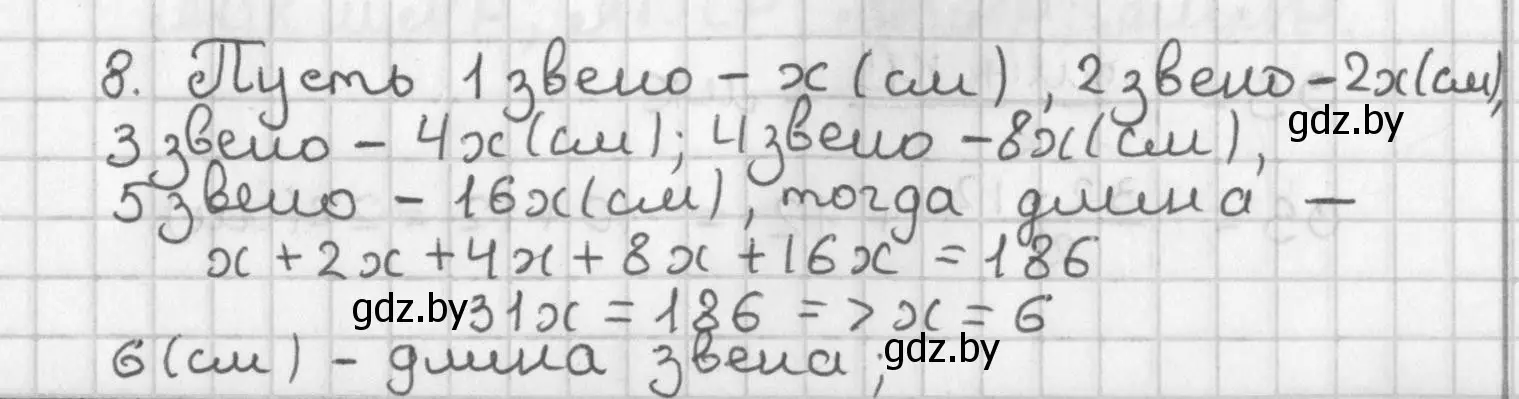 8. Пусть 1 звено - x (см), 2 звено - 2x (см),
gdz.by
3 звено - 4x (см); 4 звено - 8x (см),
5 звено - 16x (см), тогда длина -
x + 2x + 4x + 8x + 16x = 186
gdz.by 31x = 186 => x = 6
6 (см) - длина звена; gdz.by